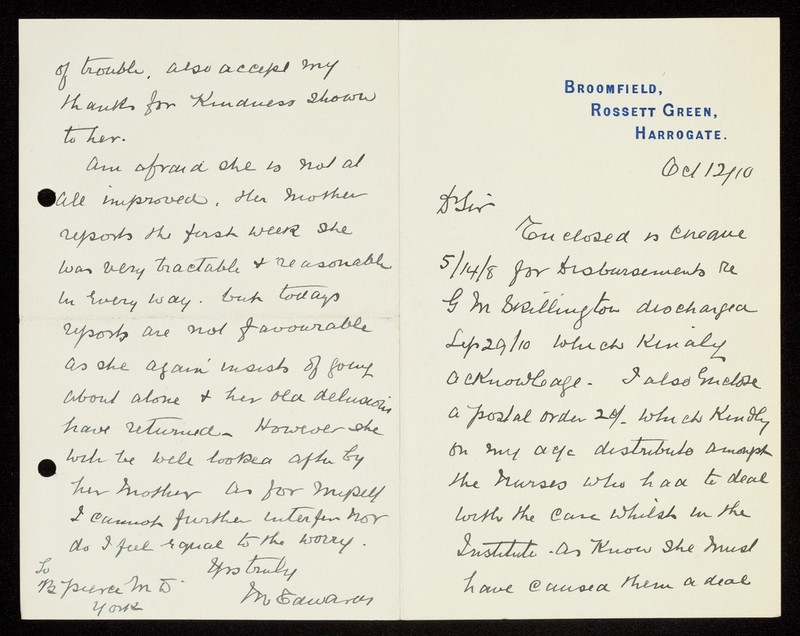 BROOMFIELD,
ROSSETT GREEN,
HARROGATE.
Oct 12/10
D Sir
Enclosed is cheque
5/14/8 for Disbursements re
G M Skillington discharged
Sep 29/10 which Kindly
acknowledge - I also Enclose
a postal order which Kindly
on my a/c distribute amongst
the Nurses who had to deal
with the case whilst in the
Institute - as Know she must
have caused them a deal
of trouble, also accept my
thanks for Kindness shown
to her.
Am afraid she is not at
all improved, Her Mother
reports the first week she
was very tractable & reasonable
in Every way. but todays
reports are not favourable
as she again insists of going
about alone & her old delusions
have returned - However she
will be well looked after by
her Mother as for Myself
I cannot further interfere nor
do I feel Equal to the worry.
Yrs truly
M Edwards
To
B Pierce M D
York